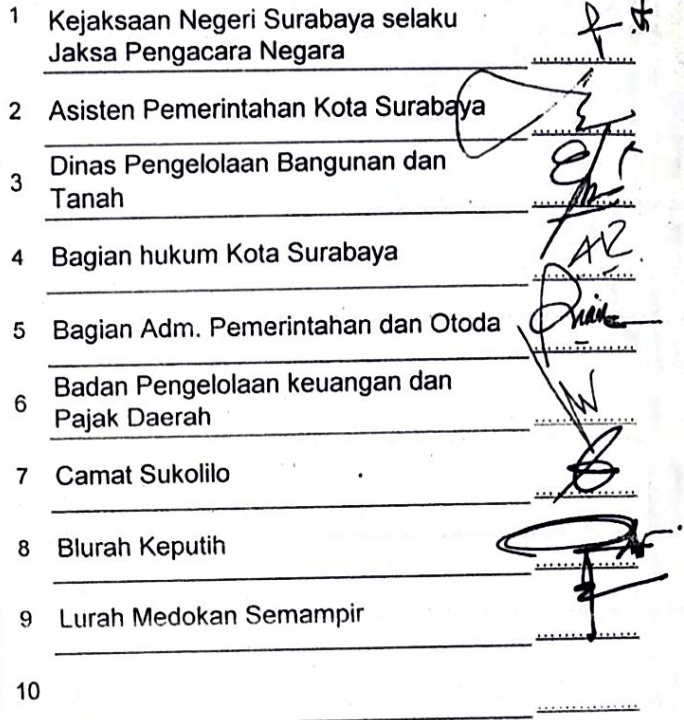 1 Kejaksaan Negeri Surabaya selaku
Jaksa Pengacara Negara
2 Asisten Pemerintahan Kota Surabaya
3 Dinas Pengelolaan Bangunan dan
Tanah
4 Bagian hukum Kota Surabaya
5 Bagian Adm. Pemerintahan dan Otoda
6 Badan Pengelolaan keuangan dan
Pajak Daerah
7 Camat Sukolilo
8 Blurah Keputih
9 Lurah Medokan Semampir
10